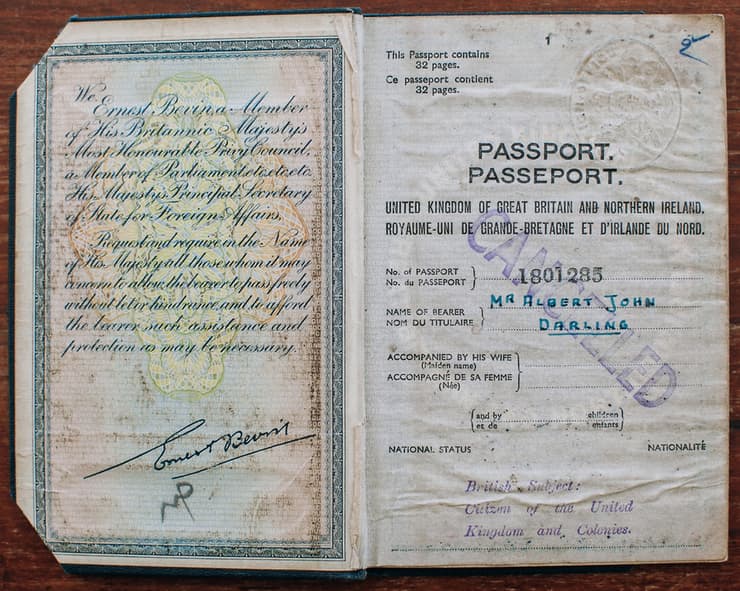 We
Ernest Bevin, a Member
of His Britannic Majesty's
Most Honourable Privy Council,
a Member of Parliament, etc, etc, etc.
His Majesty's Principal Secretary
of State for Foreign Affairs,
Request and require in the Name
of His Majesty all those whom it may
concern to allow the bearer to pass freely
without let or hindrance, and to afford
the bearer such assistance and
protection as may be necessary.
Ernest Bevin
1
This Passport contains
32 pages.
Ce passeport contient
32 pages.
PASSPORT.
PASSEPORT.
UNITED KINGDOM OF GREAT BRITAIN AND NORTHERN IRELAND.
ROYAUME-UNI DE GRANDE-BRETAGNE ET D'IRLANDE DU NORD.
CANCELLED
No. of PASSPORT
No. du PASSEPORT
1801285
NAME OF BEARER
NOM DU TITULAIRE
MR ALBERT JOHN
DARLING
ACCOMPANIED BY HIS WIFE
(Maiden name)
ACCOMPAGNÉ DE SA FEMME
(Née)
and by children
et de enfants
NATIONAL STATUS NATIONALITÉ
British Subject:
Citizen of the United
Kingdom and Colonies.